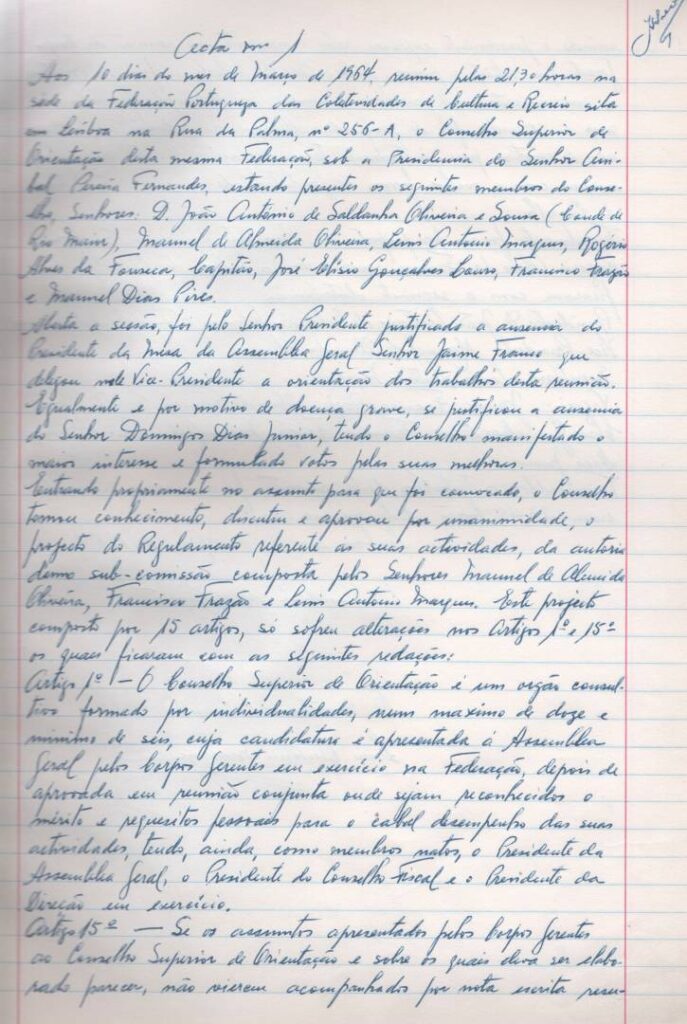 Acta nº 1
Aos 10 dias do mes de Março de 1964, reuniu pelas 21,30 horas na
sede da Federação Portuguesa das Coletividades de Cultura e Recreio sita
em Lisboa na Rua da Palma, nº 256-A, o Conselho Superior de
Orientação desta mesma Federação, sob a Presidencia do Senhor Anni-
bal Pereira Fernandes, estando presentes os seguintes membros do Conse-
lho, Senhores: D. João António de Saldanha Oliveira e Sousa (Conde de
Rio Maior), Manuel de Almeida Oliveira, Luis Antonio Marques, Rogério
Alves da Fonseca, Capitão, José Elisio Gonçalves Louro, Francisco Frazão
e Manuel Dias Pires.
Aberta a sessão, foi pelo Senhor Presidente justificado a ausencia do
Presidente da Mesa da Assemblea Geral Senhor Jaime Franco que
delegou nele Vice-Presidente a orientação dos trabalhos desta reunião.
Egualmente e por motivo de doença grave, se justificou a ausencia
do Senhor Domingos Dias Junior, tendo o Conselho manifestado o
maior interesse e formulado votos pelas suas melhoras.
Entrando propriamente no assunto para que foi convocado, o Conselho
tomou conhecimento, discutiu e aprovou por unanimidade, o
projecto do Regulamento referente às suas actividades, da autoria
duma sub-comissão composta pelos Senhores Manuel de Almeida
Oliveira, Francisco Frazão e Luis Antonio Marques. Este projecto
composto por 15 artigos, só sofreu alterações nos Artigos 1º e 15º
os quais ficaram com as seguintes redações:
Artigo 1º — O Conselho Superior de Orientação é um orgão consul-
tivo formado por individualidades, num maximo de doze e
minimo de seis, cuja candidatura é apresentada á Assemblea
Geral pelos Corpos Gerentes em exercício na Federação, depois de
aprovada em reunião conjunta onde sejam reconhecidos o
mérito e requesitos pessoais para o cabal desempenho das suas
actividades, tendo, ainda, como membros natos, o Presidente da
Assemblea Geral, o Presidente do Conselho Fiscal e o Presidente da
Direção em exercício.
Artigo 15º — Se os assuntos apresentados pelos Corpos Gerentes
ao Conselho Superior de Orientação e sobre os quais deva ser elabo-
rado parecer, não vierem acompanhados por nota escrita resu-